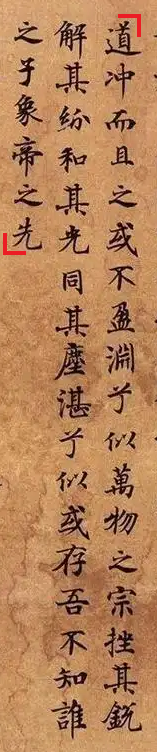 道冲而且之或不盈淵兮似萬物之宗挫其銳
解其紛和其光同其塵湛兮似或存吾不知誰
之子象帝之先